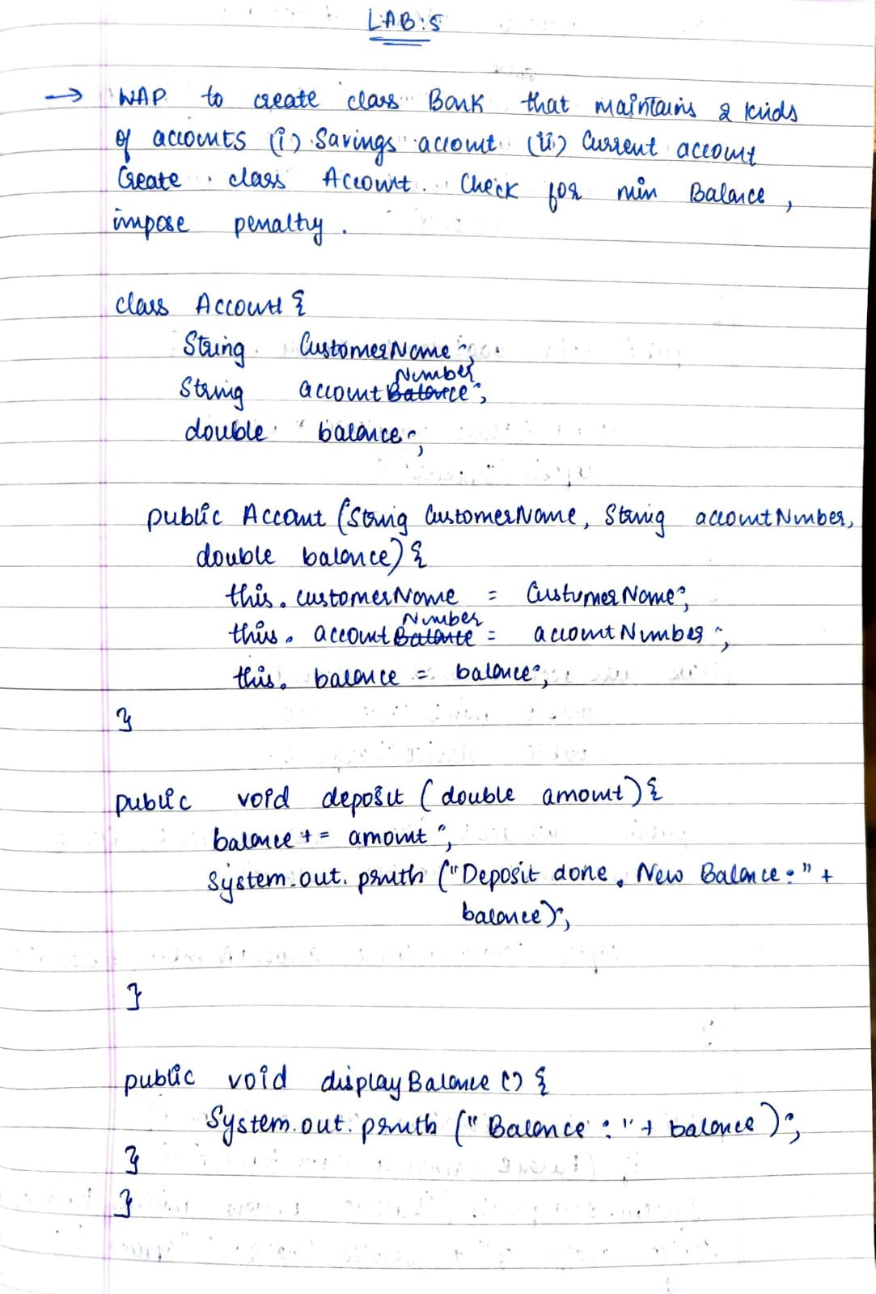 LAB:5
→ WAP to create class Bank that maintains 2 kinds
of accounts (i) Savings account (ii) Current account
Create class Account. Check for min Balance,
impose penalty.
class Account {
String CustomerName;
String accountNumber;
double balance;
public Account (String CustomerName, String accountNumber,
double balance) {
this.customerName = CustumerName;
this.accountNumber = accountNumber;
this.balance = balance;
}
public void deposit (double amount) {
balance += amount;
System.out.println ("Deposit done. New Balance:" +
balance);
}
public void displayBalance () {
System.out.println ("Balance:" + balance);
}
}